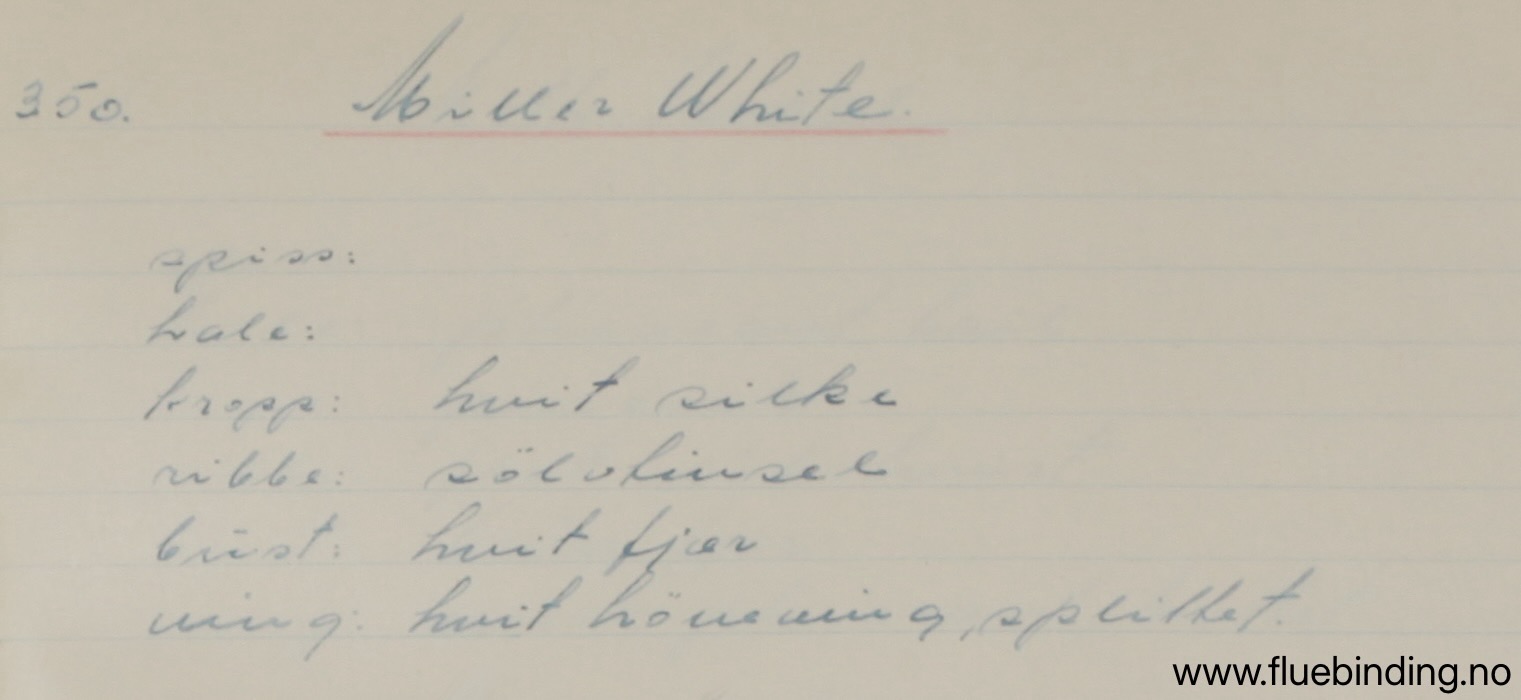 350. Miller White.
spiss:
hale:
kropp: hvit silke
ribbe: sölvtinsel
büst: hvit fjær
ving: hvit höneving, splittet.
www.fluebinding.no